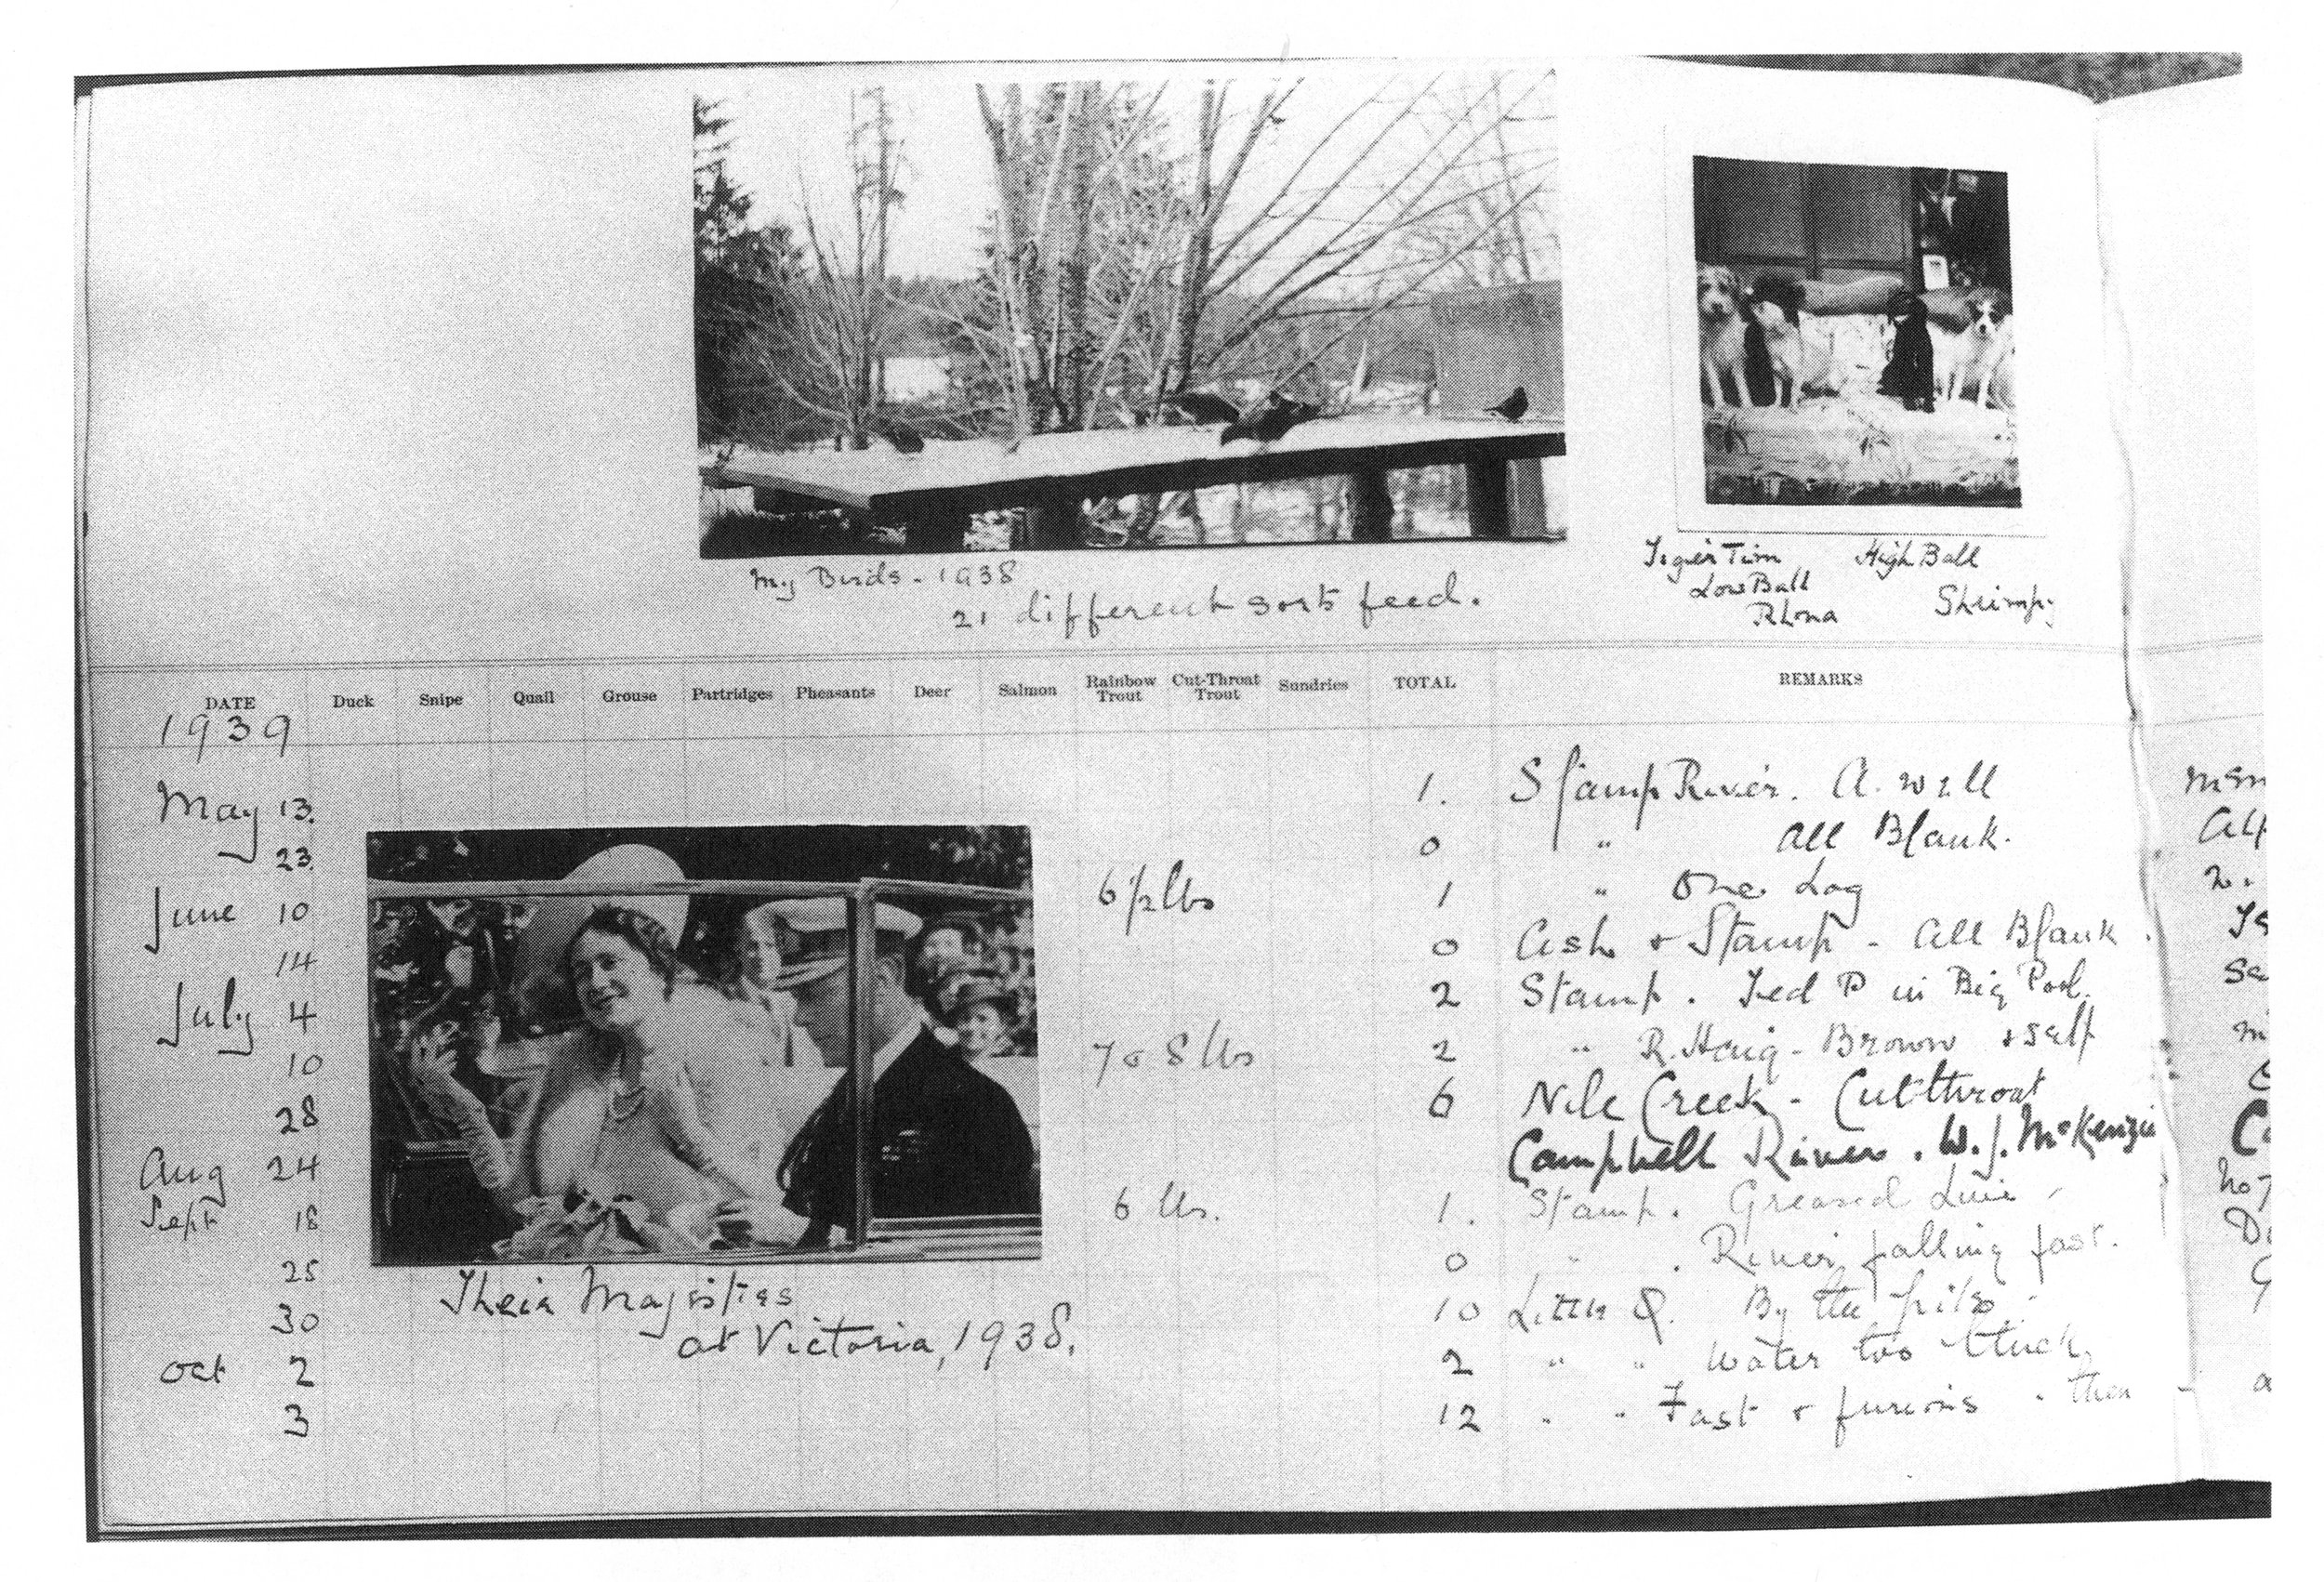 My Birds - 1938
21 different sorts feed.
Tiger Tim High Ball
Low Ball
Rhona Shrimpy
DATE Duck Snipe Quail Grouse Partridges Pheasants Deer Salmon Rainbow Trout Cut-Throat Trout Sundries TOTAL REMARKS
1939
May 13. 1. Stamp River. A. well
23. 0 " All Blank.
June 10 6 1/2 lbs 1 " One Log
14 0 Ash & Stamp - All Blank.
July 4 2 Stamp. Ted P in Big Pool.
10 7 & 8 lbs 2 " R. Haig-Brown & self
28 6 Nile Creek - Cutthroat
Aug 24 Campbell River. W. J. McKenzie
Sept 18 6 lbs. 1. Stamp. Greased Line -
25 0 " . River falling fast.
30 10 Little Q. By the
Oct 2 2 " " Water too thick
3 12 " " Fast & furious - then -
Their Majesties
at Victoria, 1938.